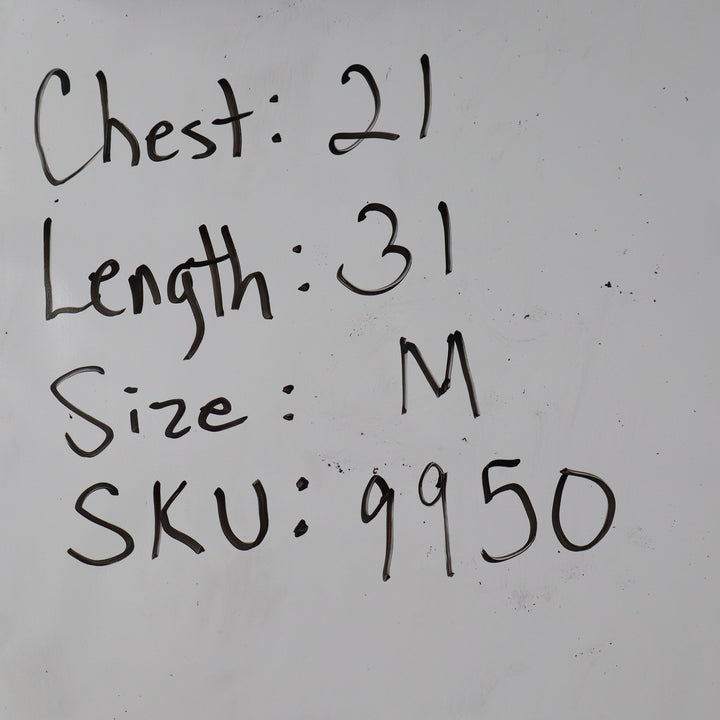 Chest: 21
Length: 31
Size: M
SKU: 9950